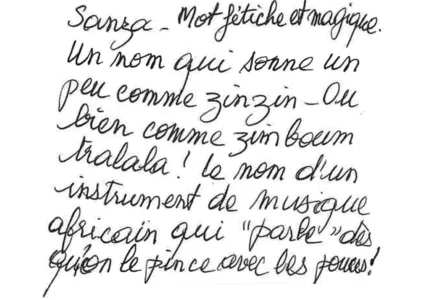 Sanza - Mot fétiche et magique.
Un nom qui sonne un
peu comme zinzin - Ou
bien comme zim boum
tralala ! Le nom d'un
instrument de musique
africain qui "parle" dès
qu'on le pince avec les pouces !